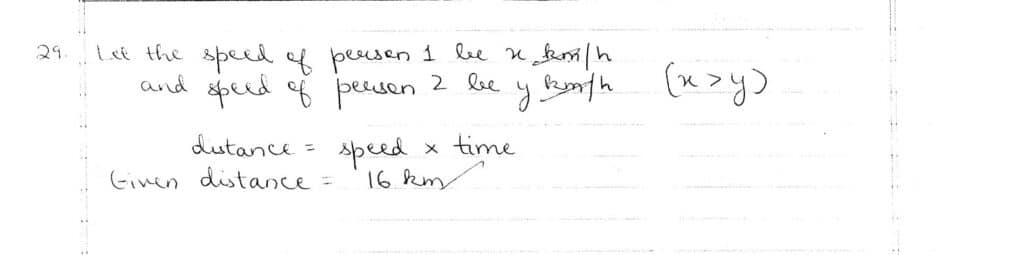 29. Let the speed of person 1 be x km/h
and speed of person 2 be y km/h (x>y)
distance = speed x time
Given distance = 16 km